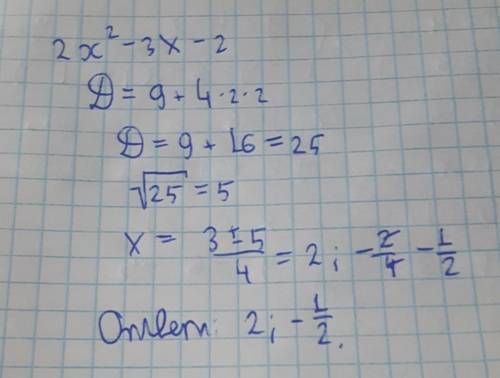 2x² - 3x - 2
D = 9 + 4 · 2 · 2
D = 9 + 16 = 25
√25 = 5
x = (3 ± 5)/4 = 2; -2/4 - 1/2
Ответ: 2; -1/2.